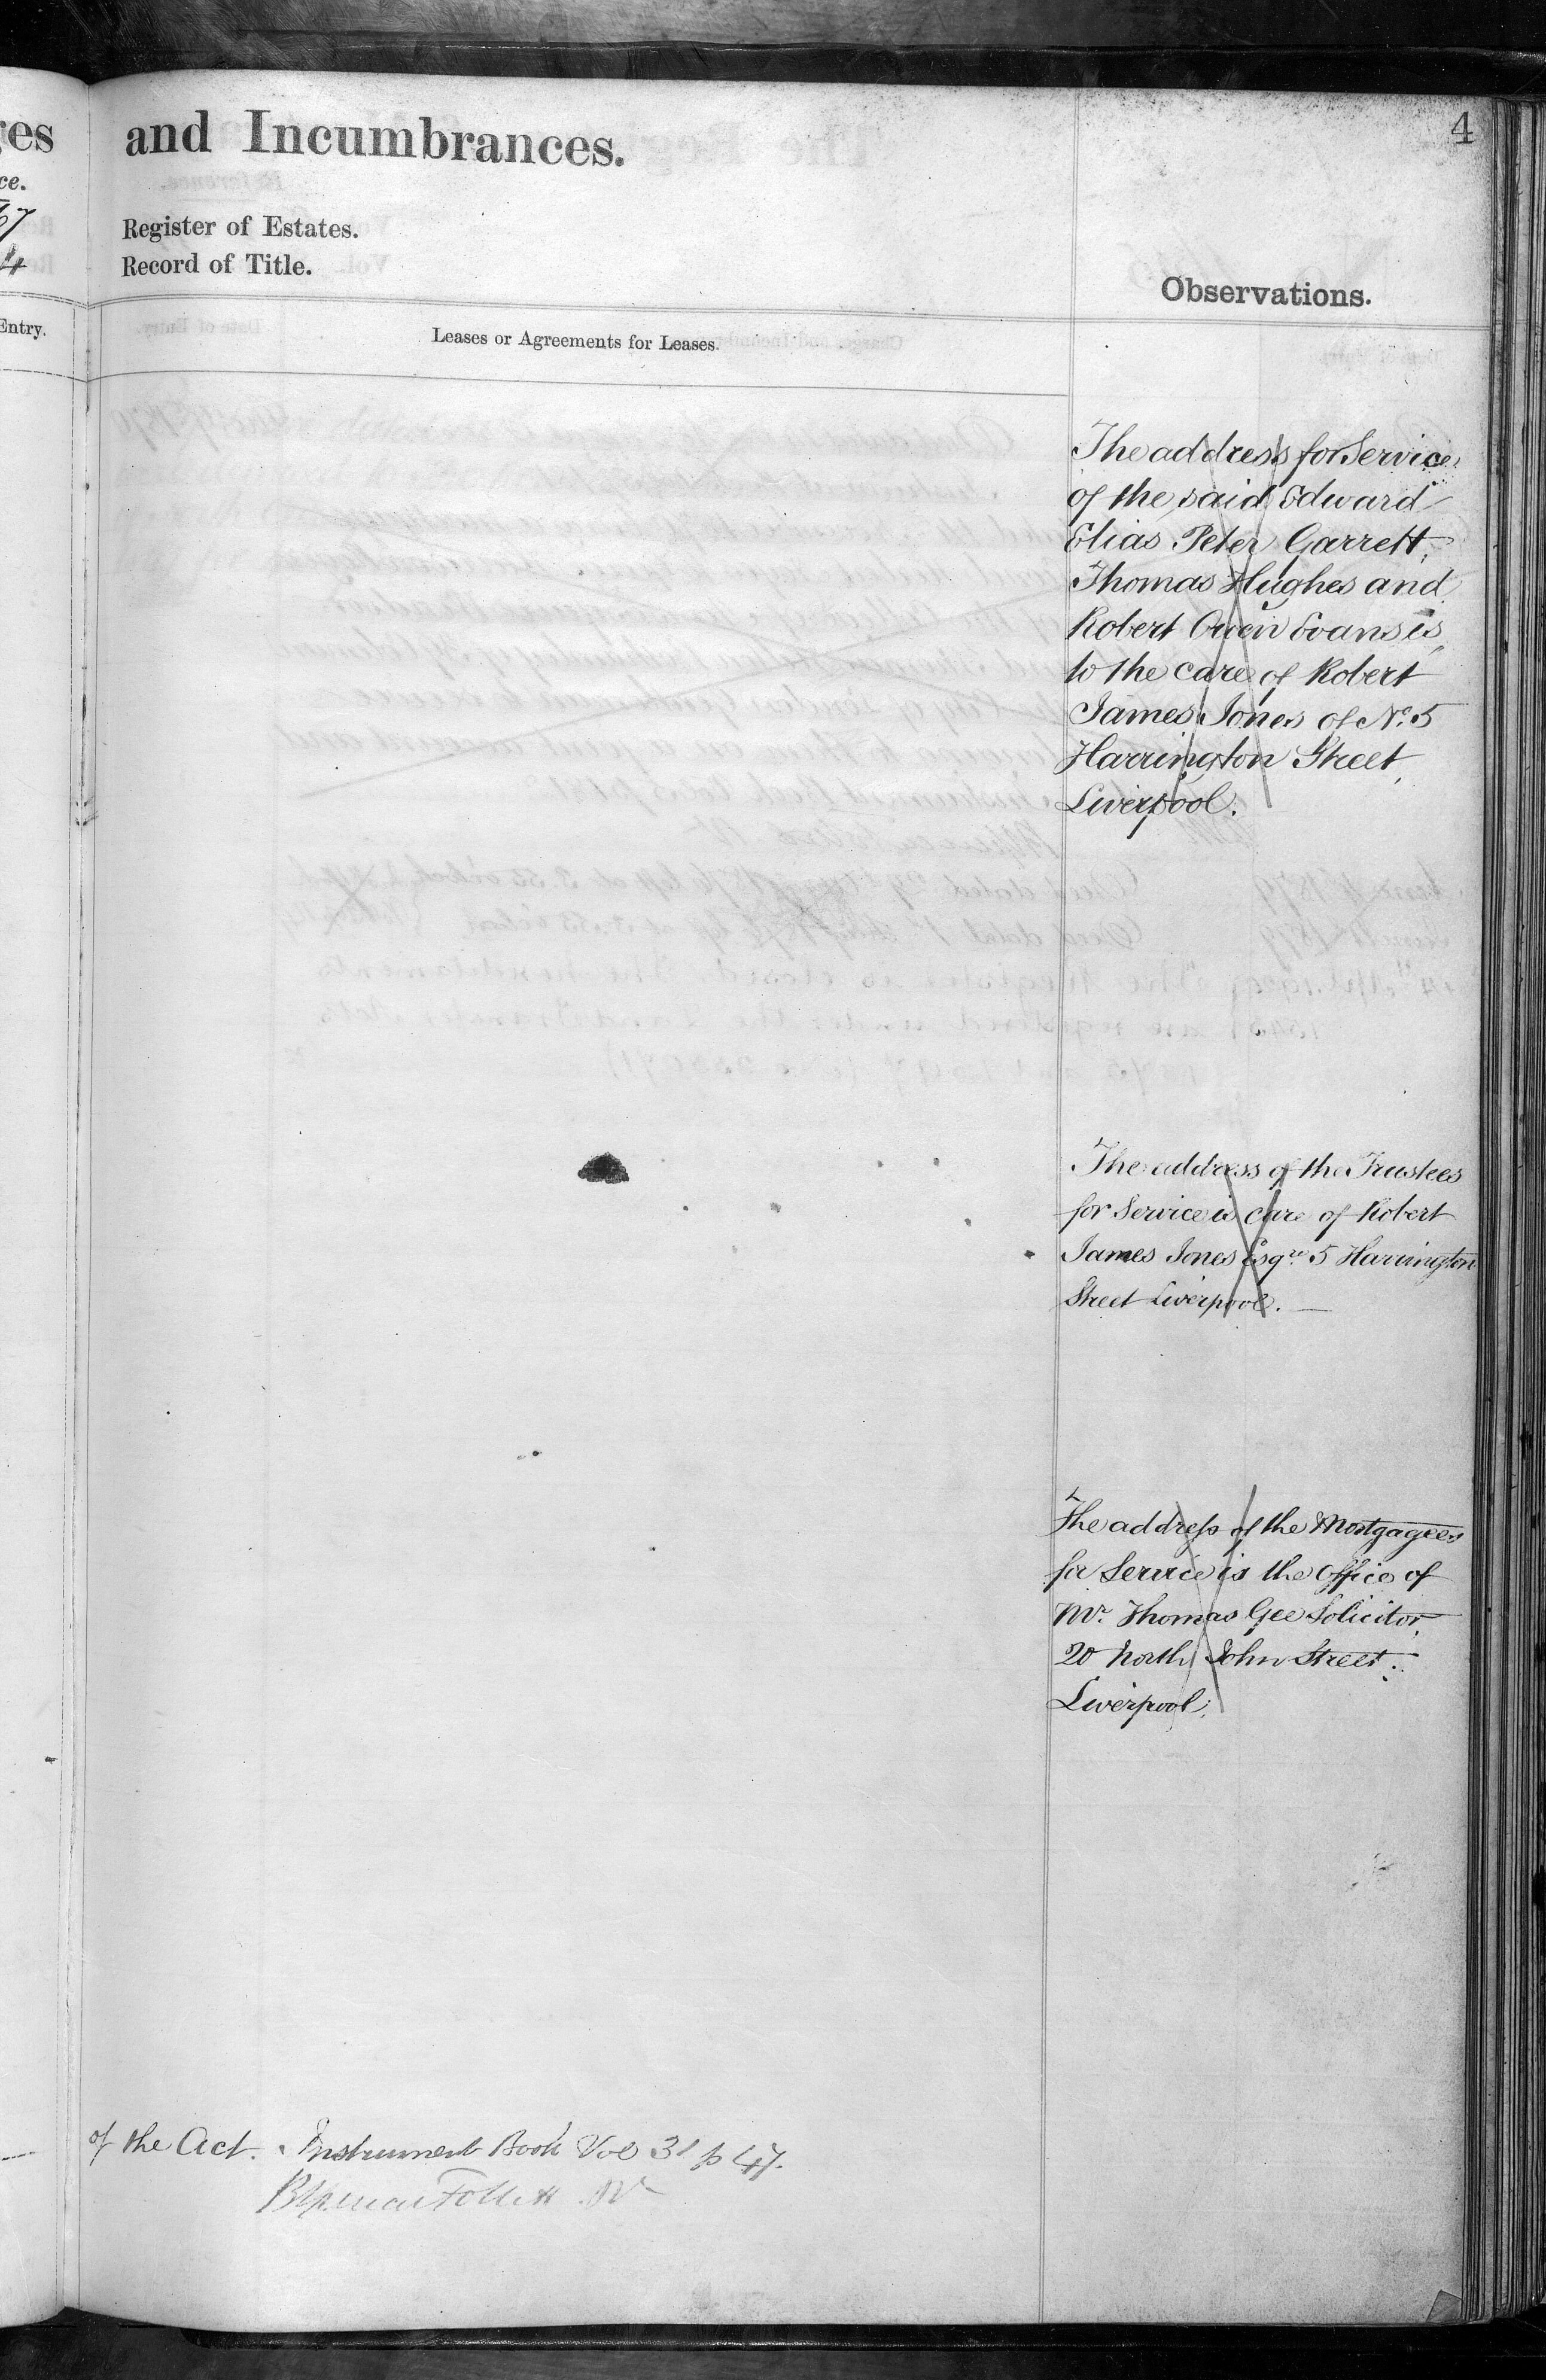 ges
ce.
67
4
Entry.
and Incumbrances.
4
Register of Estates.
Record of Title.
Observations.
Leases or Agreements for Leases.
The address for Service
of the said Edward
Elias Peter Garrett,
Thomas Hughes and
Robert Owen Evans is
to the care of Robert
James Jones of No. 5
Harrington Street,
Liverpool.
The address of the Trustees
for Service is care of Robert
James Jones Esqre 5 Harrington
Street Liverpool.
The address of the Mortgagees
for Service is the Office of
Mr. Thomas Gee Solicitor,
20 North John Street,
Liverpool.
of the Act. Instrument Book Vol 31 p 47.
Follett